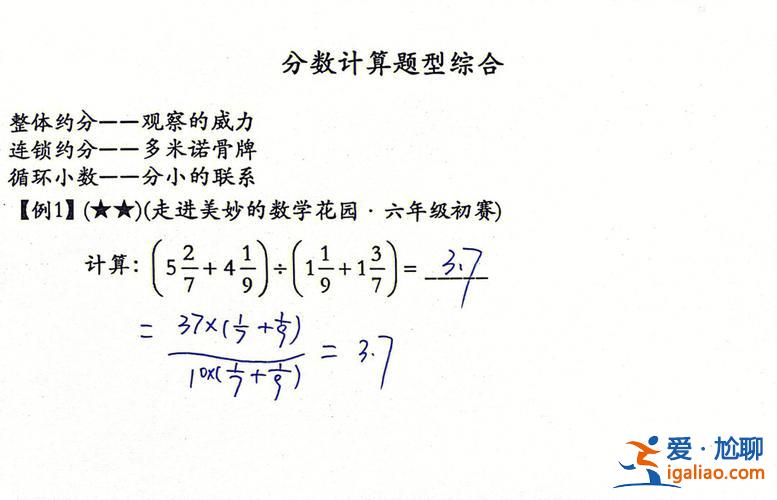 分数计算题型综合
整体约分——观察的威力
连锁约分——多米诺骨牌
循环小数——分小的联系
【例1】(★★)(走进美妙的数学花园·六年级初赛)
计算: (5 2/7 + 4 1/9) ÷ (1 1/9 + 1 3/7) = 3.7
= 37×(1/7 + 1/9) / 10×(1/7 + 1/9) = 3.7
爱·尬聊
igaliao.com